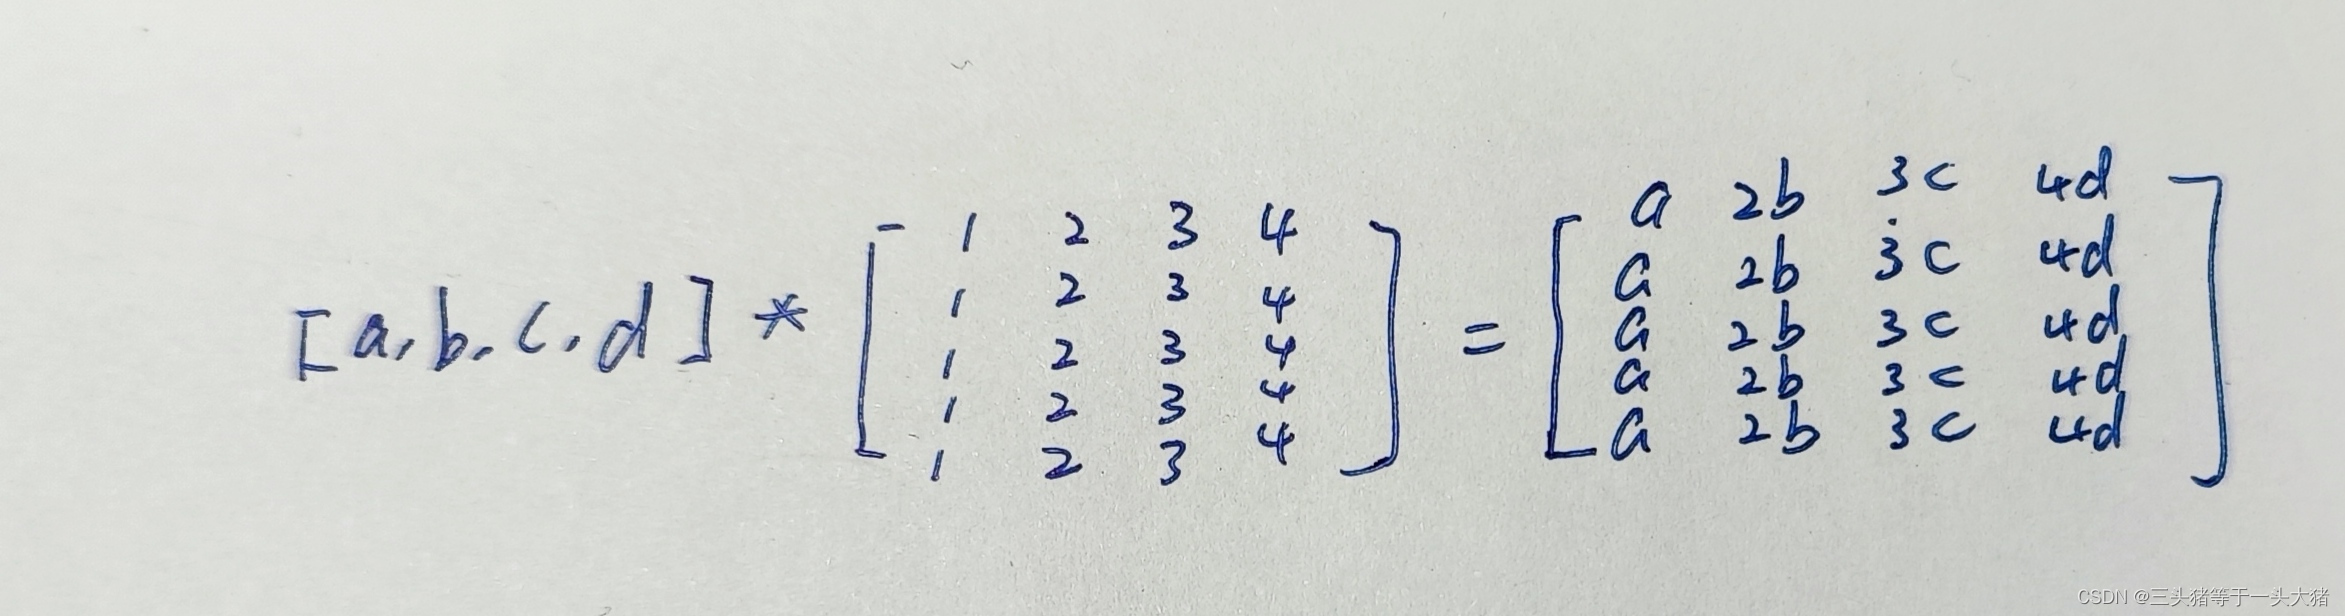 [a, b, c, d] * [1 2 3 4 = [a 2b 3c 4d]
1 2 3 4 a 2b 3c 4d
1 2 3 4] a 2b 3c 4d
1 2 3 4 a 2b 3c 4d
1 2 3 4 a 2b 3c 4d
CSDN @三头猪等于一头大猪